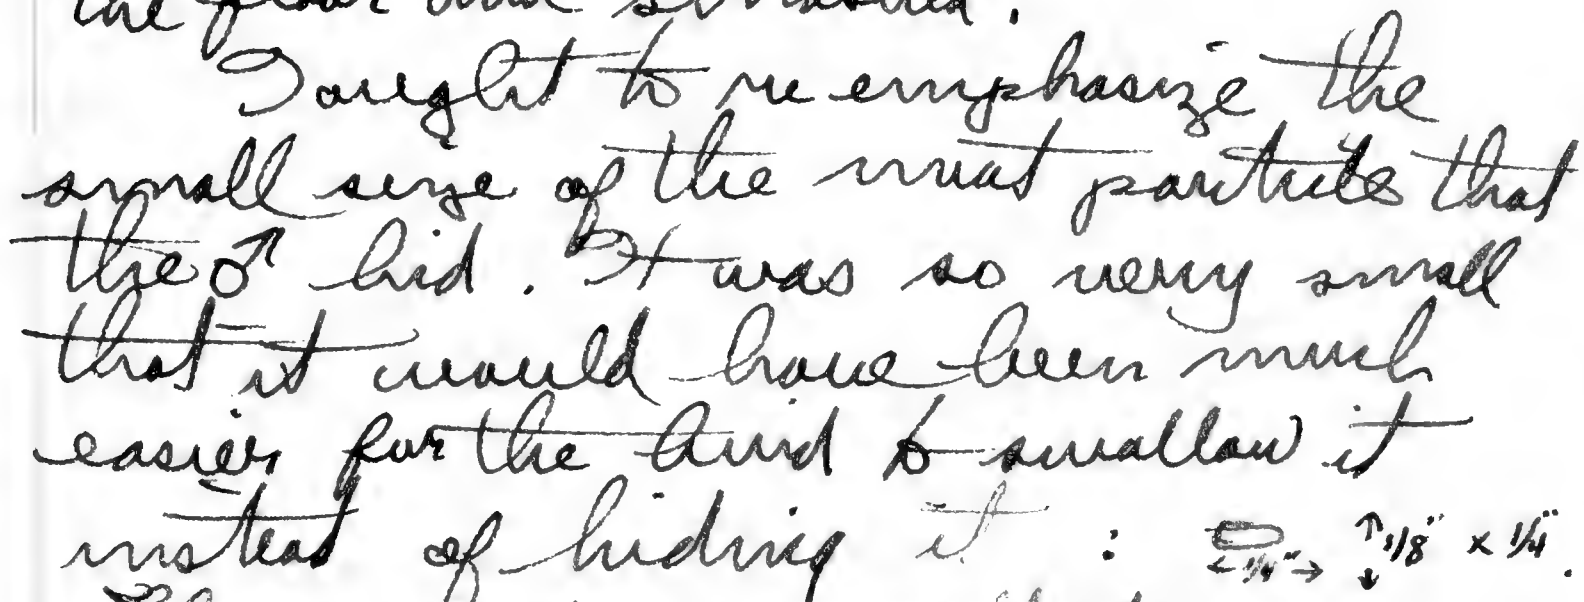 the floor and
I ought to re emphasize the
small size of the meat particle that
the ♂ hid. It was so very small
that it would have been much
easier for the bird to swallow it
instead of hiding it : ←1/4"→ ↑1/8" x 1/4".
↓